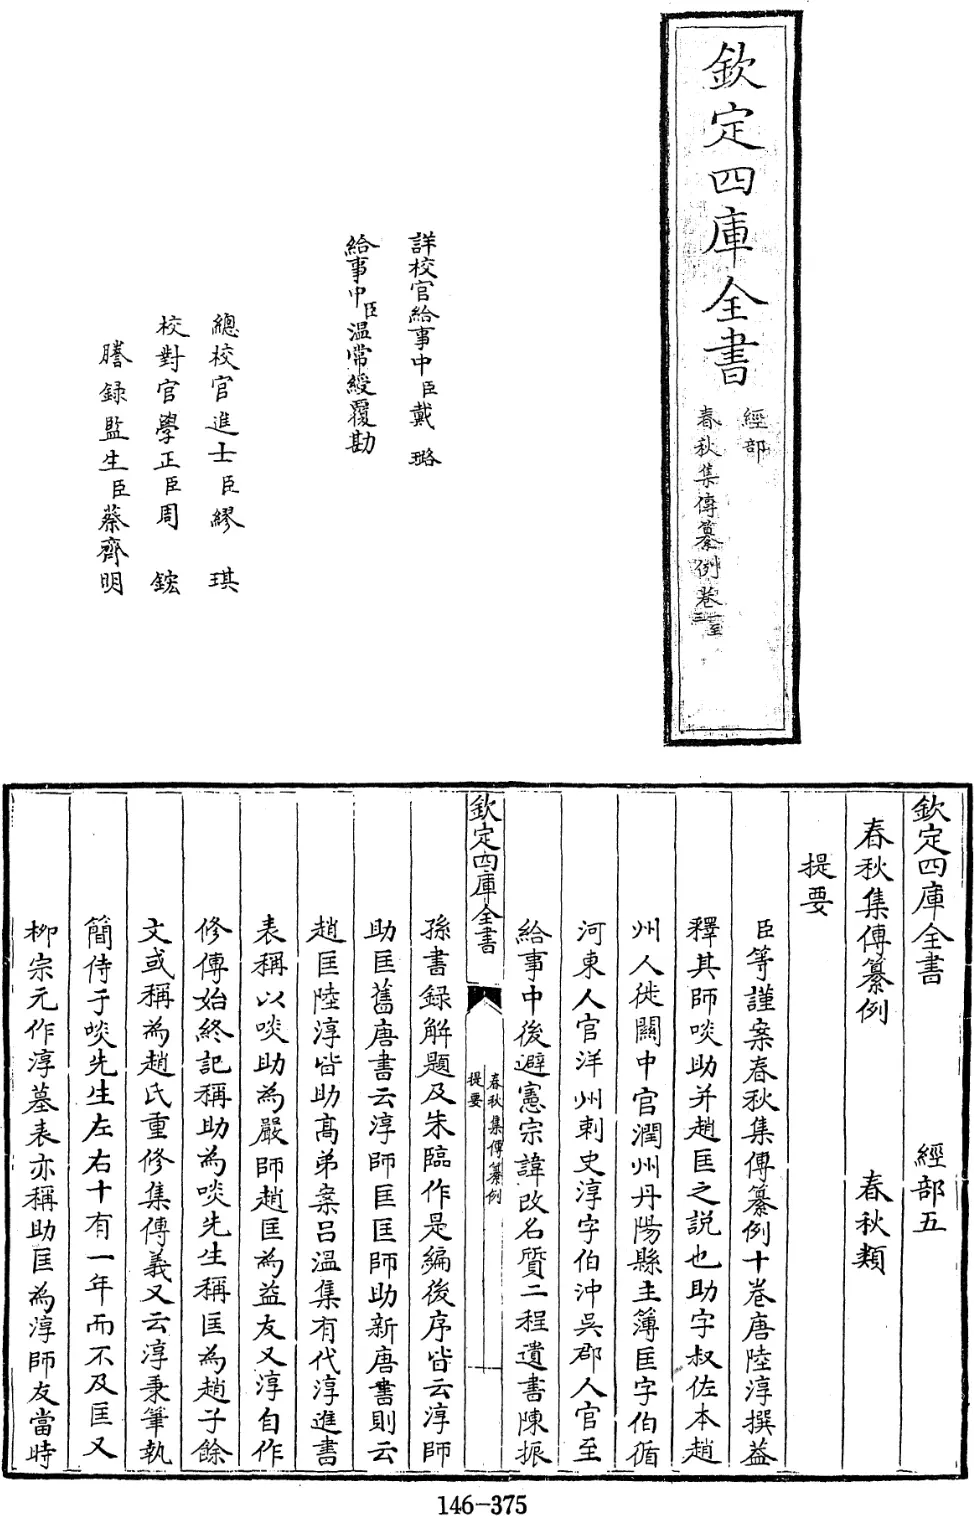 欽定四庫全書
經部
春秋集傳纂例卷一至三
詳校官給事中臣戴璐
給事中臣温常綬覆勘
總校官進士臣繆琪
校對官學正臣周鋐
謄録監生臣蔡齊明
欽定四庫全書 經部五
春秋集傳纂例 春秋類
提要
臣等謹案春秋集傳纂例十卷唐陸淳撰葢
釋其師啖助并趙匡之説也助字叔佐本趙
州人徙關中官潤州丹陽縣主簿匡字伯循
河東人官洋州刺史淳字伯沖吳郡人官至
給事中後避憲宗諱改名質二程遺書陳振
欽定四庫全書
春秋集傳纂例
提要
孫書録解題及朱臨作是編後序皆云淳師
助匡舊唐書云淳師匡匡師助新唐書則云
趙匡陸淳皆助髙弟案吕溫集有代淳進書
表稱以啖助為嚴師趙匡為益友又淳自作
修傳始終記稱助為啖先生稱匡為趙子餘
文或稱為趙氏重修集傳義又云淳秉筆執
簡侍于啖先生左右十有一年而不及匡又
柳宗元作淳墓表亦稱助匡為淳師友當時
146-375